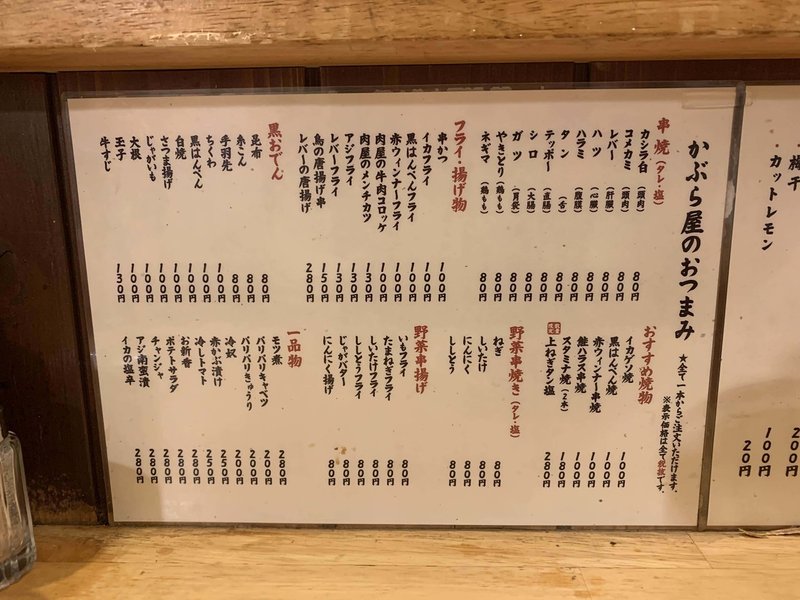 ・梅干
・カットレモン
200円
100円
20円
かぶら屋のおつまみ
★全て一本からご注文いただけます。
※表示価格は全て税抜です。
串焼(タレ・塩)
カシラ白(頭肉) 80円
コメカミ(頭肉) 80円
レバー(肝臓) 80円
ハツ(心臓) 80円
ハラミ(腹膜) 80円
タン(舌) 80円
テッポー(直腸) 80円
シロ(大腸) 80円
ガツ(胃袋) 80円
やきとり(鶏もも) 80円
ネギマ(鶏もも) 80円
フライ・揚げ物
串かつ 100円
イカフライ 100円
黒はんぺんフライ 100円
赤ウィンナーフライ 100円
肉屋の牛肉コロッケ 100円
肉屋のメンチカツ 130円
アジフライ 130円
レバーフライ 130円
鳥の唐揚げ串 150円
レバーの唐揚げ 280円
黒おでん
昆布 80円
糸こん 80円
手羽先 80円
ちくわ 100円
黒はんぺん 100円
白焼 100円
さつま揚げ 100円
じゃがいも 100円
大根 100円
玉子 100円
牛すじ 130円
おすすめ焼物
イカゲソ焼 100円
黒はんぺん焼 100円
赤ウィンナー串焼 100円
鮭ハラス串焼 100円
スタミナ焼(2本) 180円
数量限定 上ねぎタン塩 280円
野菜串焼き(タレ・塩)
ねぎ 80円
しいたけ 80円
にんにく 80円
ししとう 80円
野菜串揚げ
いもフライ 80円
たまねぎフライ 80円
しいたけフライ 80円
ししとうフライ 80円
じゃがバター 80円
にんにく揚げ 80円
一品物
モツ煮 280円
バリバリキャベツ 200円
バリバリきゅうり 200円
冷奴 200円
赤かぶ漬け 250円
冷しトマト 250円
お新香 280円
ポテトサラダ 280円
チャンジャ 280円
アジ南蛮漬 280円
イカの塩辛 280円